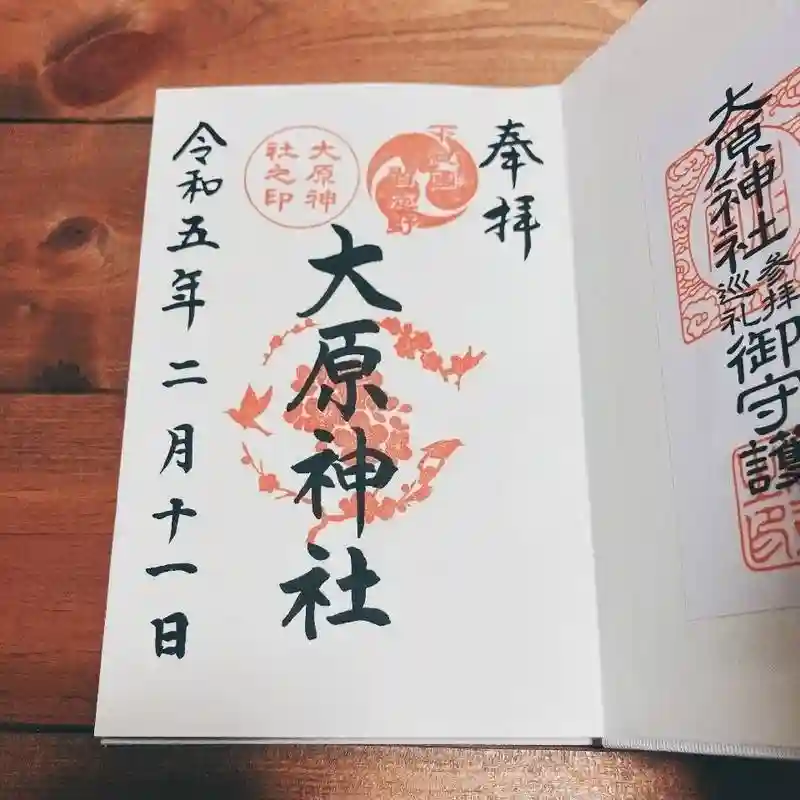 大原神社
参拝
巡礼
御守護
奉拝
下総国
習志野
大原神
社之印
大原神社
令和五年二月十一日